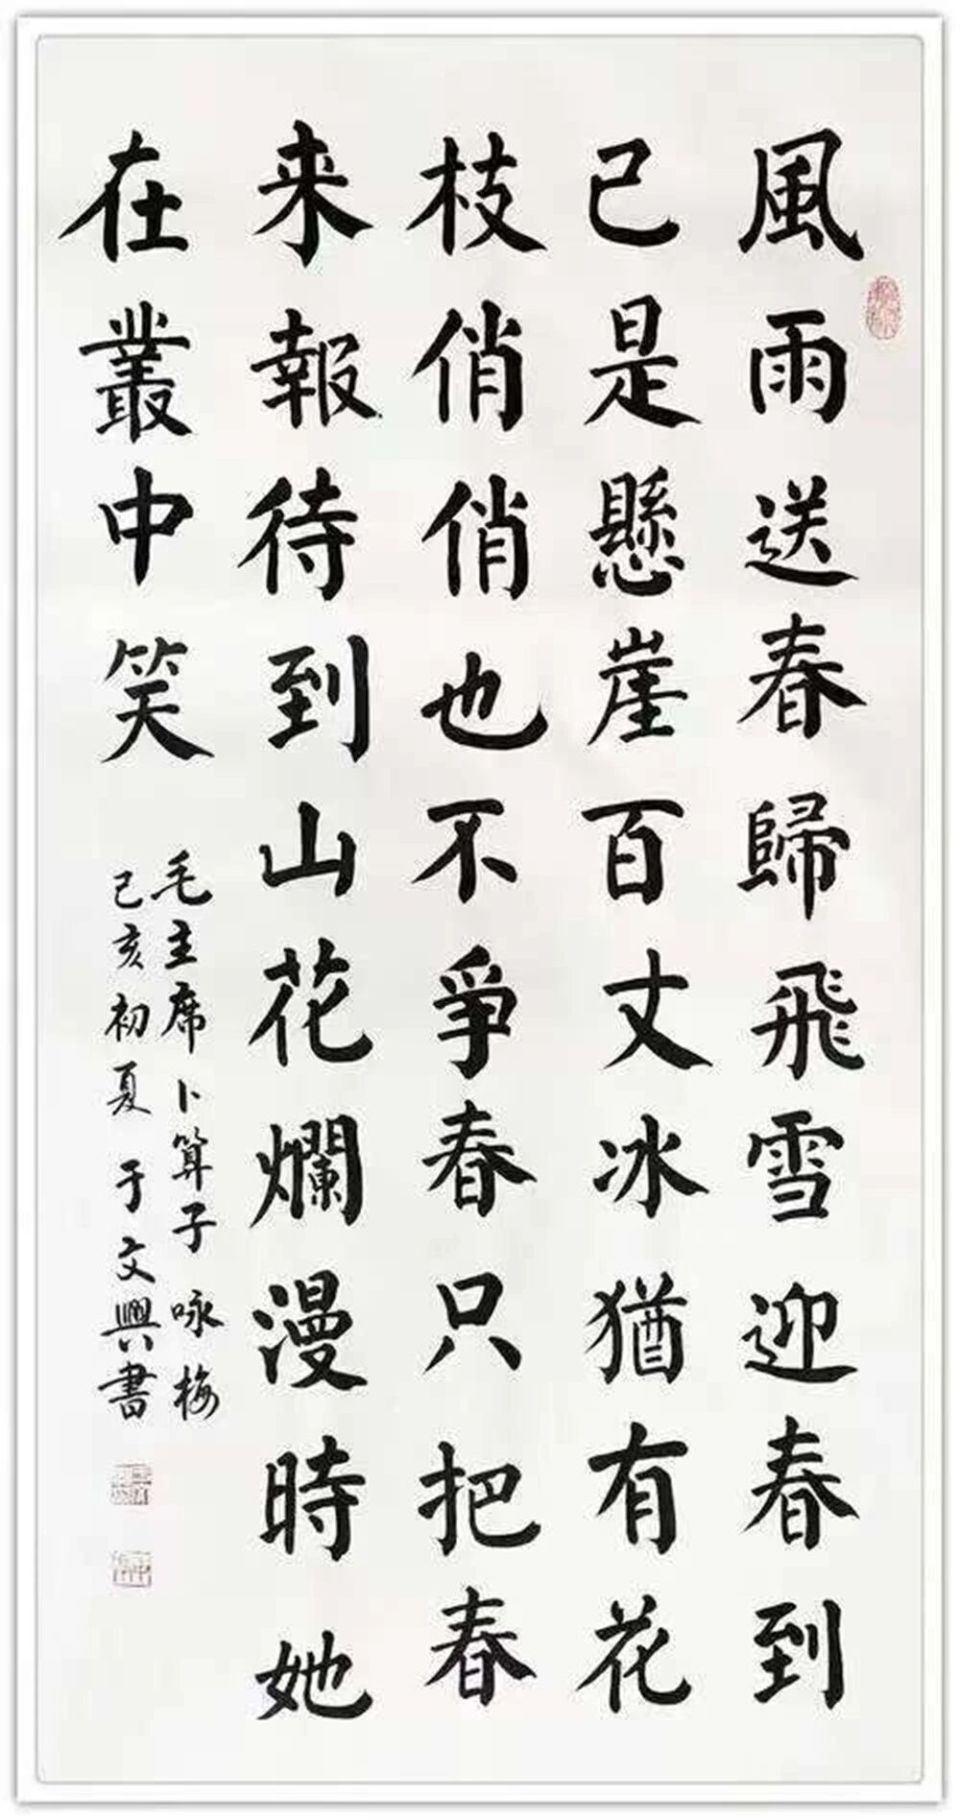 風雨送春歸飛雪迎春到
已是懸崖百丈冰猶有花
枝俏俏也不爭春只把春
来報待到山花爛漫時她
在叢中笑
毛主席卜算子咏梅
己亥初夏于文興書